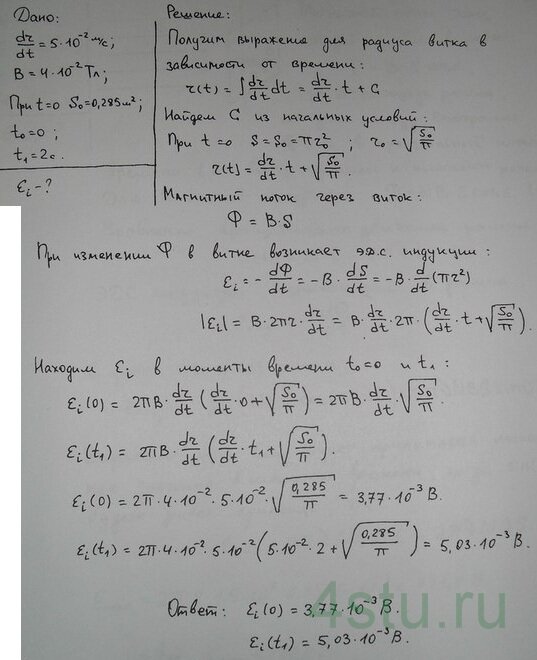 Дано:
dr/dt = 5·10⁻² м/с;
B = 4·10⁻² Тл;
При t=0 S₀=0,285 м²;
t₀=0 ;
t₁=2c.
Ɛi - ?
Решение:
Получим выражение для радиуса витка в
зависимости от времени:
r(t) = ∫ dr/dt dt = dr/dt · t + C
Найдем C из начальных условий:
При t=0 S=S₀=πr₀² ; r₀ = √(S₀/π)
r(t) = dr/dt · t + √(S₀/π).
Магнитный поток через виток:
Ф = B·S
При изменении Ф в витке возникает э.д.с. индукции:
Ɛi = - dФ/dt = -B · dS/dt = -B · d/dt (πr²)
|Ɛi| = B·2πr· dr/dt = B· dr/dt ·2π· ( dr/dt · t + √(S₀/π) ).
Находим Ɛi в моменты времени t₀=0 и t₁:
Ɛi(0) = 2πB· dr/dt ( dr/dt ·0 + √(S₀/π) ) = 2πB· dr/dt · √(S₀/π).
Ɛi(t₁) = 2πB· dr/dt ( dr/dt · t₁ + √(S₀/π) ).
Ɛi(0) = 2π·4·10⁻²·5·10⁻²· √(0,285/π) = 3,77·10⁻³ В.
Ɛi(t₁) = 2π·4·10⁻²·5·10⁻² (5·10⁻²·2 + √(0,285/π) ) = 5,03·10⁻³ В.
Ответ: Ɛi(0) = 3,77·10⁻³ В.
Ɛi(t₁) = 5,03·10⁻³ В.
4stu.ru